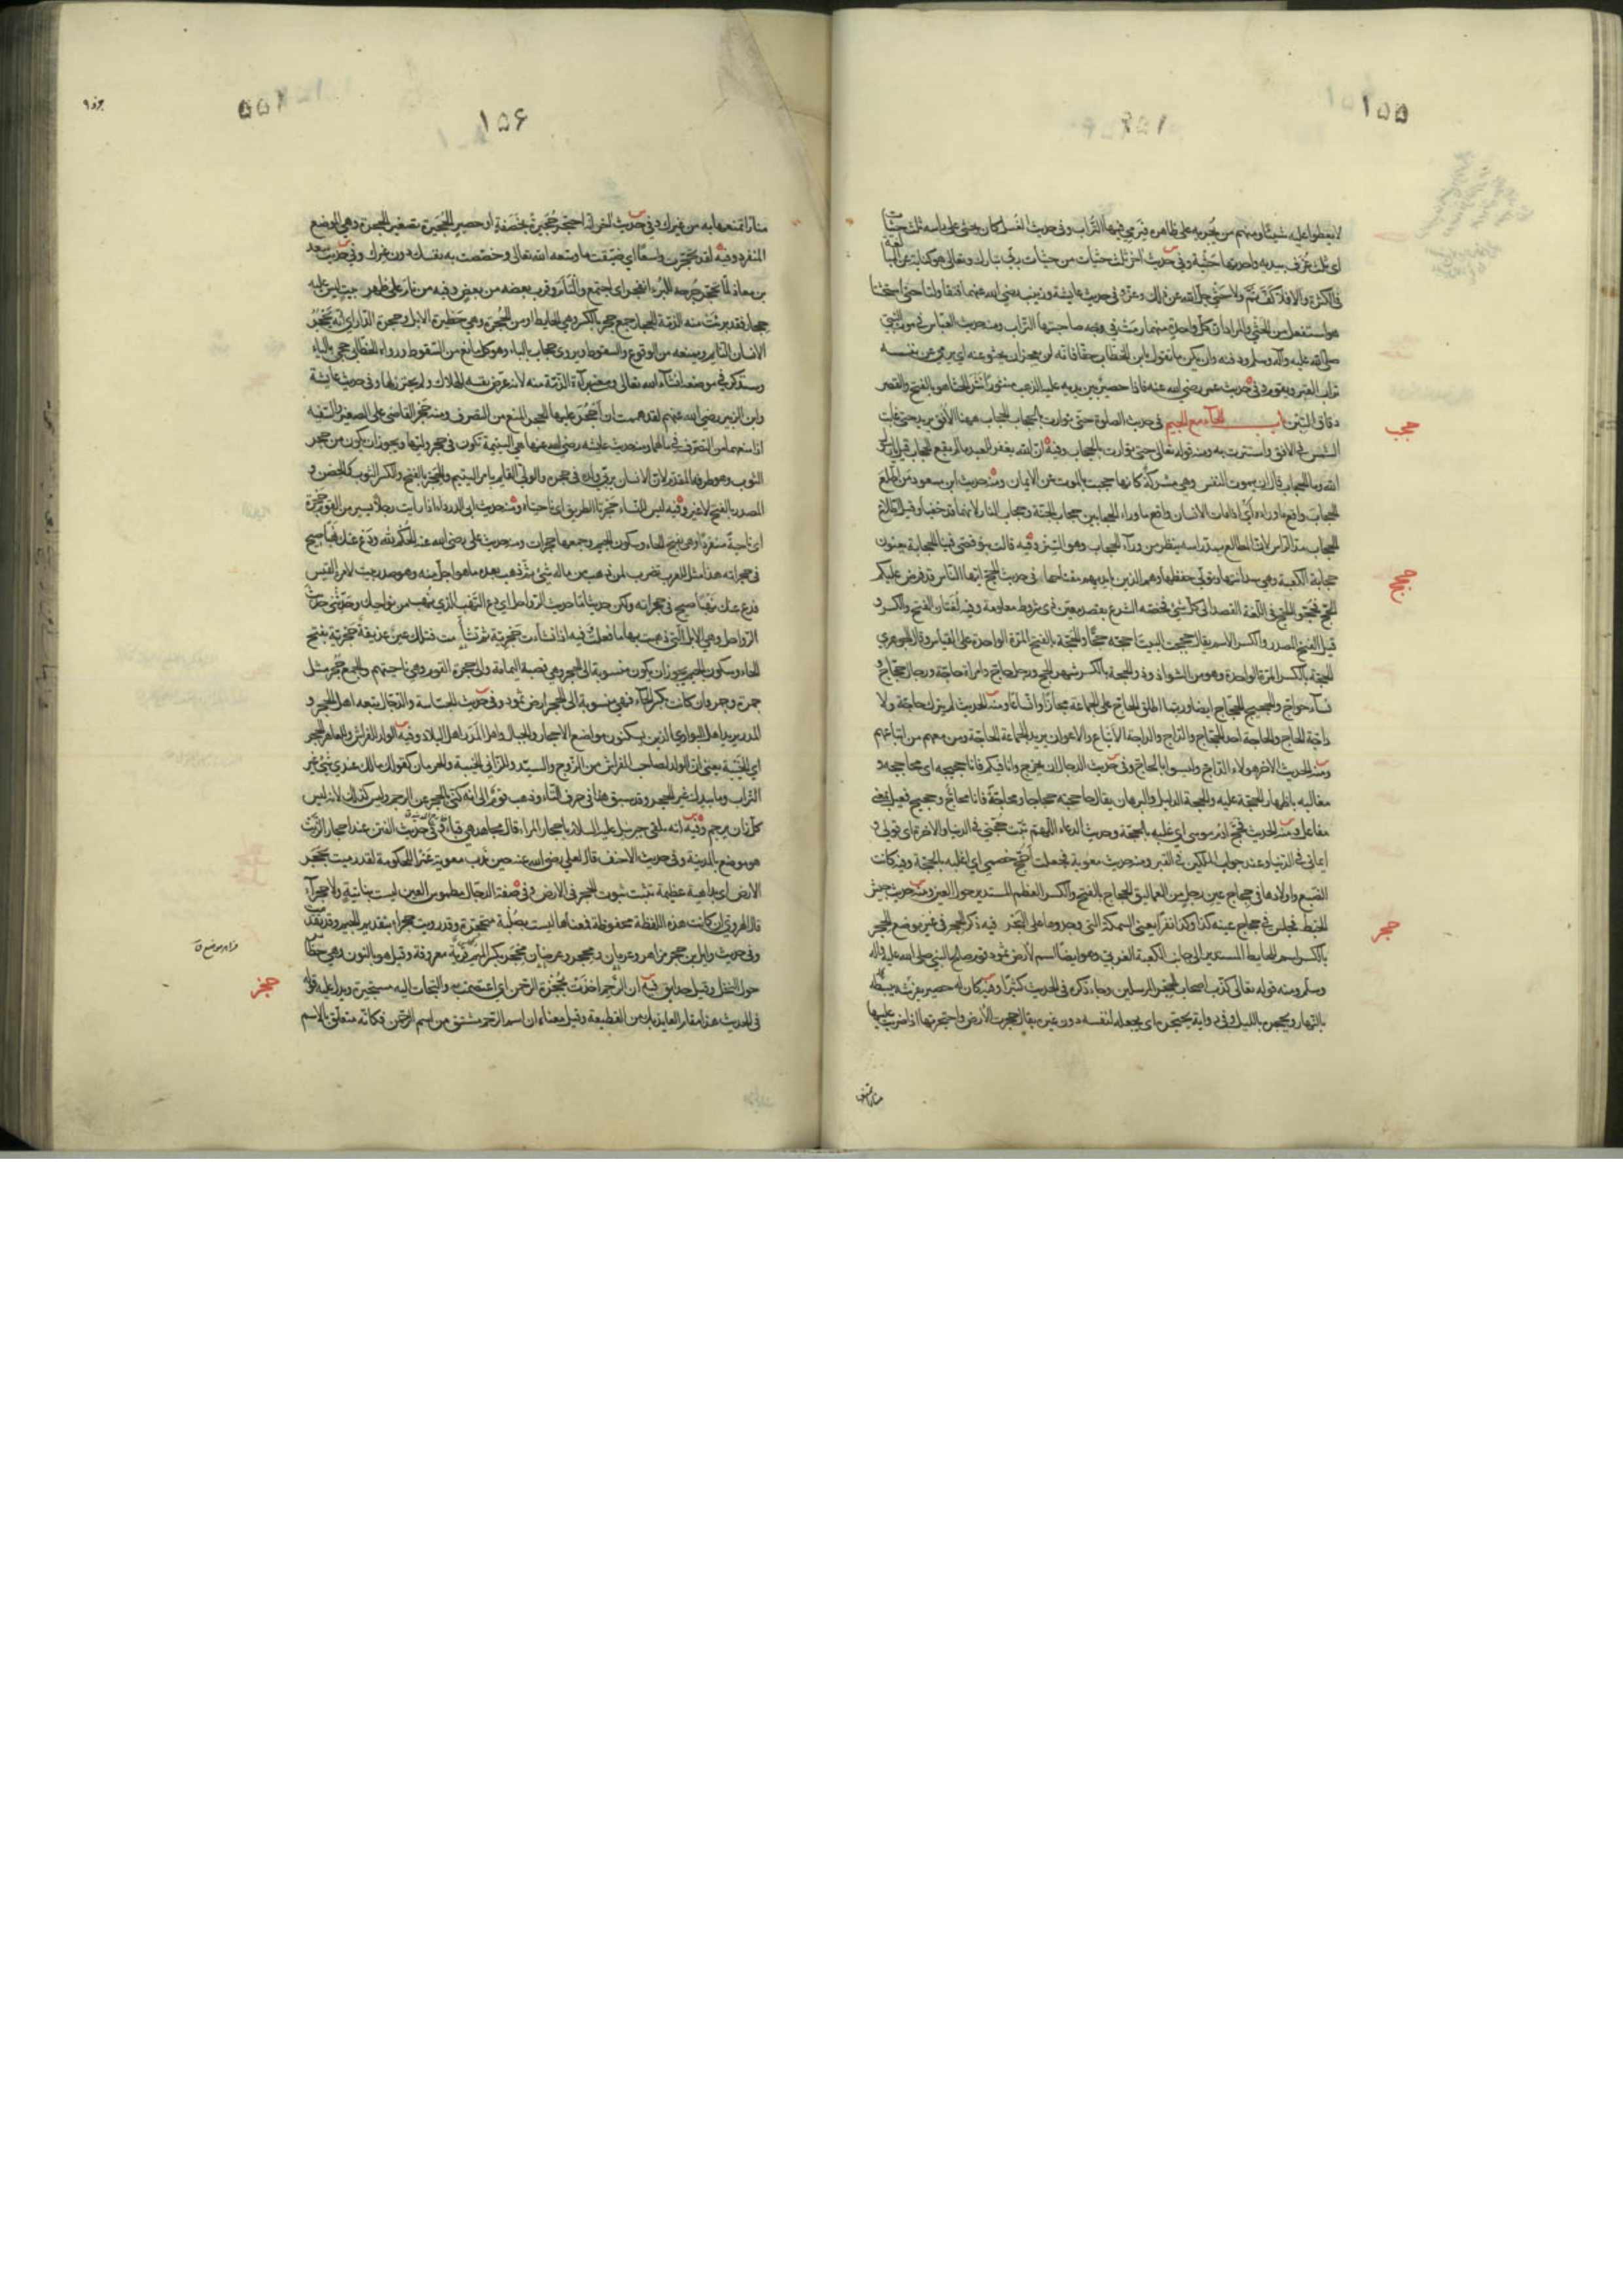 ۱۵۵
لا يعطوا عليه شيئا ومنهم من يجريه على ظاهره فيرمي فيها التراب وفى حديث الغسل كان يحثى على راسه ثلث حثيات
اى ثلث غرف بيديه واحدتها حثية وفى حديث اخر ثلث حثيات من حثيات ربى تبارك وتعالى هو كناية عن المبالغة
فى الكثرة والا فلا كف ثم ولا حثى جل الله عن ذلك وعز وفى حديث عايشة وزينب رضى الله عنهما فتقاولتا حتى استحثتا
هو استفعل من الحثى والمراد ان كل واحدة منهما رمت فى وجه صاحبتها التراب ومنه حديث العباس فى موت النبى
صلى الله عليه وآله وسلم ودفنه وان يكن ما تقول يابن الخطاب حقا فانه لن يعجز ان يحثو عنه اى يرمى عن نفسه
تراب القبر ويقوم وفى حديث عمر رضى الله عنه فاذا حصير بين يديه عليه الذهب منثورا نثر الحثا هو بالفتح والقصر
دقاق التبن باب الحآء مع الجيم فى حديث الصلوة حتى توارت بالحجاب الحجاب ههنا الافق يريد حتى غابت
حجب
الشمس فى الافق واستترت به ومنه قوله تعالى حتى توارت بالحجاب وفيه ان الله يغفر للعبد ما لم يقع الحجاب قيل يا رسول
الله وما الحجاب قال ان يموت النفس وهى مشركة كانها حجبت بالموت عن الايمان ومنه حديث ابن مسعود من اطلع
الحجاب واقع ما وراءه اى اذا مات الانسان واقع ما وراء الحجابين حجاب الجنة وحجاب النار لانهما قد خفيا وقيل اطلاع
الحجاب مد الراس لان المطالع يمد راسه ينظر من ورآء الحجاب وهو الستر وفيه قالت بنو قصى فينا الحجابة يعنون
حجابة الكعبة وهى سدانتها وتولى حفظها وهم الذين بايديهم مفتاحها فى حديث الحج ايها الناس قد فرض عليكم
حجج
الحج فحجوا الحج فى اللغة القصد الى كل شئ فخصه الشرع بقصد معين ذى شروط معلومة وفيه لغتان الفتح والكسر و
قيل الفتح المصدر والكسر الاسم يقال حججت البيت احجه حجا والحجة بالفتح المرة الواحدة على القياس وقال الجوهرى
الحجة بالكسر المرة الواحدة وهو من الشواذ وذو الحجة بالكسر شهر الحج ورجل حاج وامراة حاجة ورجال حجاج و
نسآء حواج والحجيج الحجاج ايضا وربما اطلق الحاج على الجماعة مجازا واتساعا ومنه الحديث لم يترك حاجة ولا
داجة الحاج والحاجة احد الحجاج والداج والداجة الاتباع والاعوان يريد الجماعة الحاجة ومن معهم من اتباعهم
ومنه الحديث الاخر هولاء الداج وليسوا بالحاج وفى حديث الدجال ان يخرج وانا فيكم فانا حجيجه اى محاججه و
مغالبه باظهار الحجة عليه والحجة الدليل والبرهان يقال حاججته حجاجا ومحاجة فانا محاج وحجيج فعيل بمعنى
مفاعل ومنه الحديث فحج آدم موسى اى غلبه بالحجة وحديث الدعاء اللهم ثبت حجتى فى الدنيا والاخرة اى قولى و
ايمانى فى الدنيا وعند جواب الملكين فى القبر ومنه حديث معوية فجعلت احج خصمى اى اغلبه بالحجة وفيه كانت
الضبع واولادها فى حجاج عين رجل من العماليق الحجاج بالفتح والكسر العظم المستدير حول العين ومنه حديث جيش
الخبط فجلس فى حجاج عينه كذا وكذا نفرا يعنى السمكة التى وجدوها على البحر فيه ذكر الحجر فى غير موضع الحجر
حجر
بالكسر اسم الحايط المستدير الى جانب الكعبة الغربى وهو ايضا اسم لارض ثمود قوم صالح النبى صلى الله عليه وآله
وسلم ومنه قوله تعالى كذب اصحاب الحجر المرسلين وجاء ذكره فى الحديث كثيرا وفيه كان له حصير يفرشه يبسطه
بالنهار ويحجره بالليل وفى رواية يحتجره اى يجعله لنفسه دون غيره يقال حجرت الارض واحتجرتها اذا ضربت عليها
منارا تمنعها
۱۵۶
منارا تمنعها به من غيرك وفى حديث اخر انه احتجر حجيرة بخصفة او حصير الحجيرة تصغير الحجرة وهى الموضع
المنفرد وفيه لقد تحجرت واسعا اى ضيقت ما وسعه الله تعالى وخصصت به نفسك دون غيرك وفى حديث سعد
بن معاذ لما تحجر جرحه للبرء انفجر اى اجتمع والتأم وقرب بعضه من بعض وفيه من نام على ظهر بيت ليس عليه
حجار فقد برئت منه الذمة الحجار جمع حجر بالكسر وهى الحايط او من الحجرة وهى حظيرة الابل وحجرة الدار اى انه يحجر
الانسان النايم ويمنعه من الوقوع والسقوط ويروى حجاب بالباء وهو كل مانع من السقوط ورواه الخطابى حجى بالياء
وسيذكر فى موضعه انشآء الله تعالى ومعنى برآءة الذمة منه لانه عرض نفسه للهلاك ولم يحترز لها وفى حديث عايشة
وابن الزبير رضى الله عنهم لقد هممت ان احجر عليها الحجر المنع من التصرف ومنه حجر القاضى على الصغير والسفيه
اذا منعهما من التصرف فى مالهما ومنه حديث عايشه رضى الله عنها هى اليتيمة تكون فى حجر وليها ويجوز ان يكون من حجر
الثوب وهو طرفه المقدم لان الانسان يربى ولده فى حجره والولى القايم بامر اليتيم والحجر بالفتح والكسر الثوب كالحضن و
المصدر بالفتح لا غير وفيه ليس للنساء حجرتا الطريق اى ناحيتاه ومنه حديث ابى الدرداء اذا رايت رجلا يسير من القوم حجرة
اى ناحية منفردا وهى بفتح الحاء وسكون الجيم وجمعها حجرات ومنه حديث على رضى الله عنه الحكم لله ودع عنك نهبا صيح
فى حجراته هذا مثل للعرب يضرب لمن ذهب من ماله شئ ثم ذهب بعده ما هو اجل منه وهو صدر بيت لامرئ القيس
فدع عنك نهبا صيح فى حجراته ولكن حديثا ما حديث الرواحل اى دع النهب الذى نهب من نواحيك وحدثنى حديث
الرواحل وهى الابل التى ذهبت بها ما فعلت وفيه اذا نشأت حجرية ثم تشأمت فتلك عين غديقة حجرية بفتح
الحاء وسكون الجيم يجوز ان يكون منسوبة الى الحجر وهى قصبة اليمامة والى حجرة القوم وهى ناحيتهم والجمع حجر مثل
جمرة وجمر وان كانت بكسر الحآء فهى منسوبة الى الحجر ارض ثمود وفى حديث الجساسة والدجال يتبعه اهل الحجر و
المدر يريد اهل البوادى الذين يسكنون مواضع الاحجار والجبال واهل المدر اهل البلاد وفيه الولد للفراش وللعاهر الحجر
اى الخيبة يعنى ان الولد لصاحب الفراش من الزوج والسيد وللزانى الخيبة والحرمان كقولك مالك عندى شئ غير
التراب وما بيدك غير الحجر وقد سبق هذا فى حرف التاء وذهب قوم الى انه كنى بالحجر عن الرجم وليس كذلك لانه ليس
كل زان يرجم وفيه انه تلقى جبرئيل عليه السلام باحجار المراء قال مجاهد هى قباء وفى حديث الفتن عند احجار الزيت
هو موضع بالمدينة وفى حديث الاحنف قال لعلى رضى الله عنه حين ندب معوية عمرا للحكومة لقد رميت بحجر
الارض اى بداهية عظيمة تثبت ثبوت الحجر فى الارض وفى صفة الدجال مطموس العين ليست بناتئة ولا حجرآء
قال الهروى ان كانت هذه اللفظة محفوظة فمعناها ليست بصلبة متحجرة وقد رويت جحرآء بتقديم الجيم وقد تقدمت
وفى حديث وايل بن حجر مزاهر وعرمان ومحجر وعرضان محجر بكسر الميم قرية معروفة وقيل هو بالنون وهى حظاير
مزاهر موضع ق
حول النخل وقيل حدايق فيه ان الرحم اخذت بحجزة الرحمن اى اعتصمت به والتجات اليه مستجيرة ويدل عليه قوله
حجز
فى الحديث هذا مقام العايذ بك من القطيعة وقيل معناه ان اسم الرحم مشتق من اسم الرحمن فكانه متعلق بالاسم